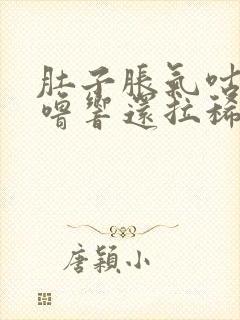 肚子脹氣咕
嚕響還拉稀
唐穎小